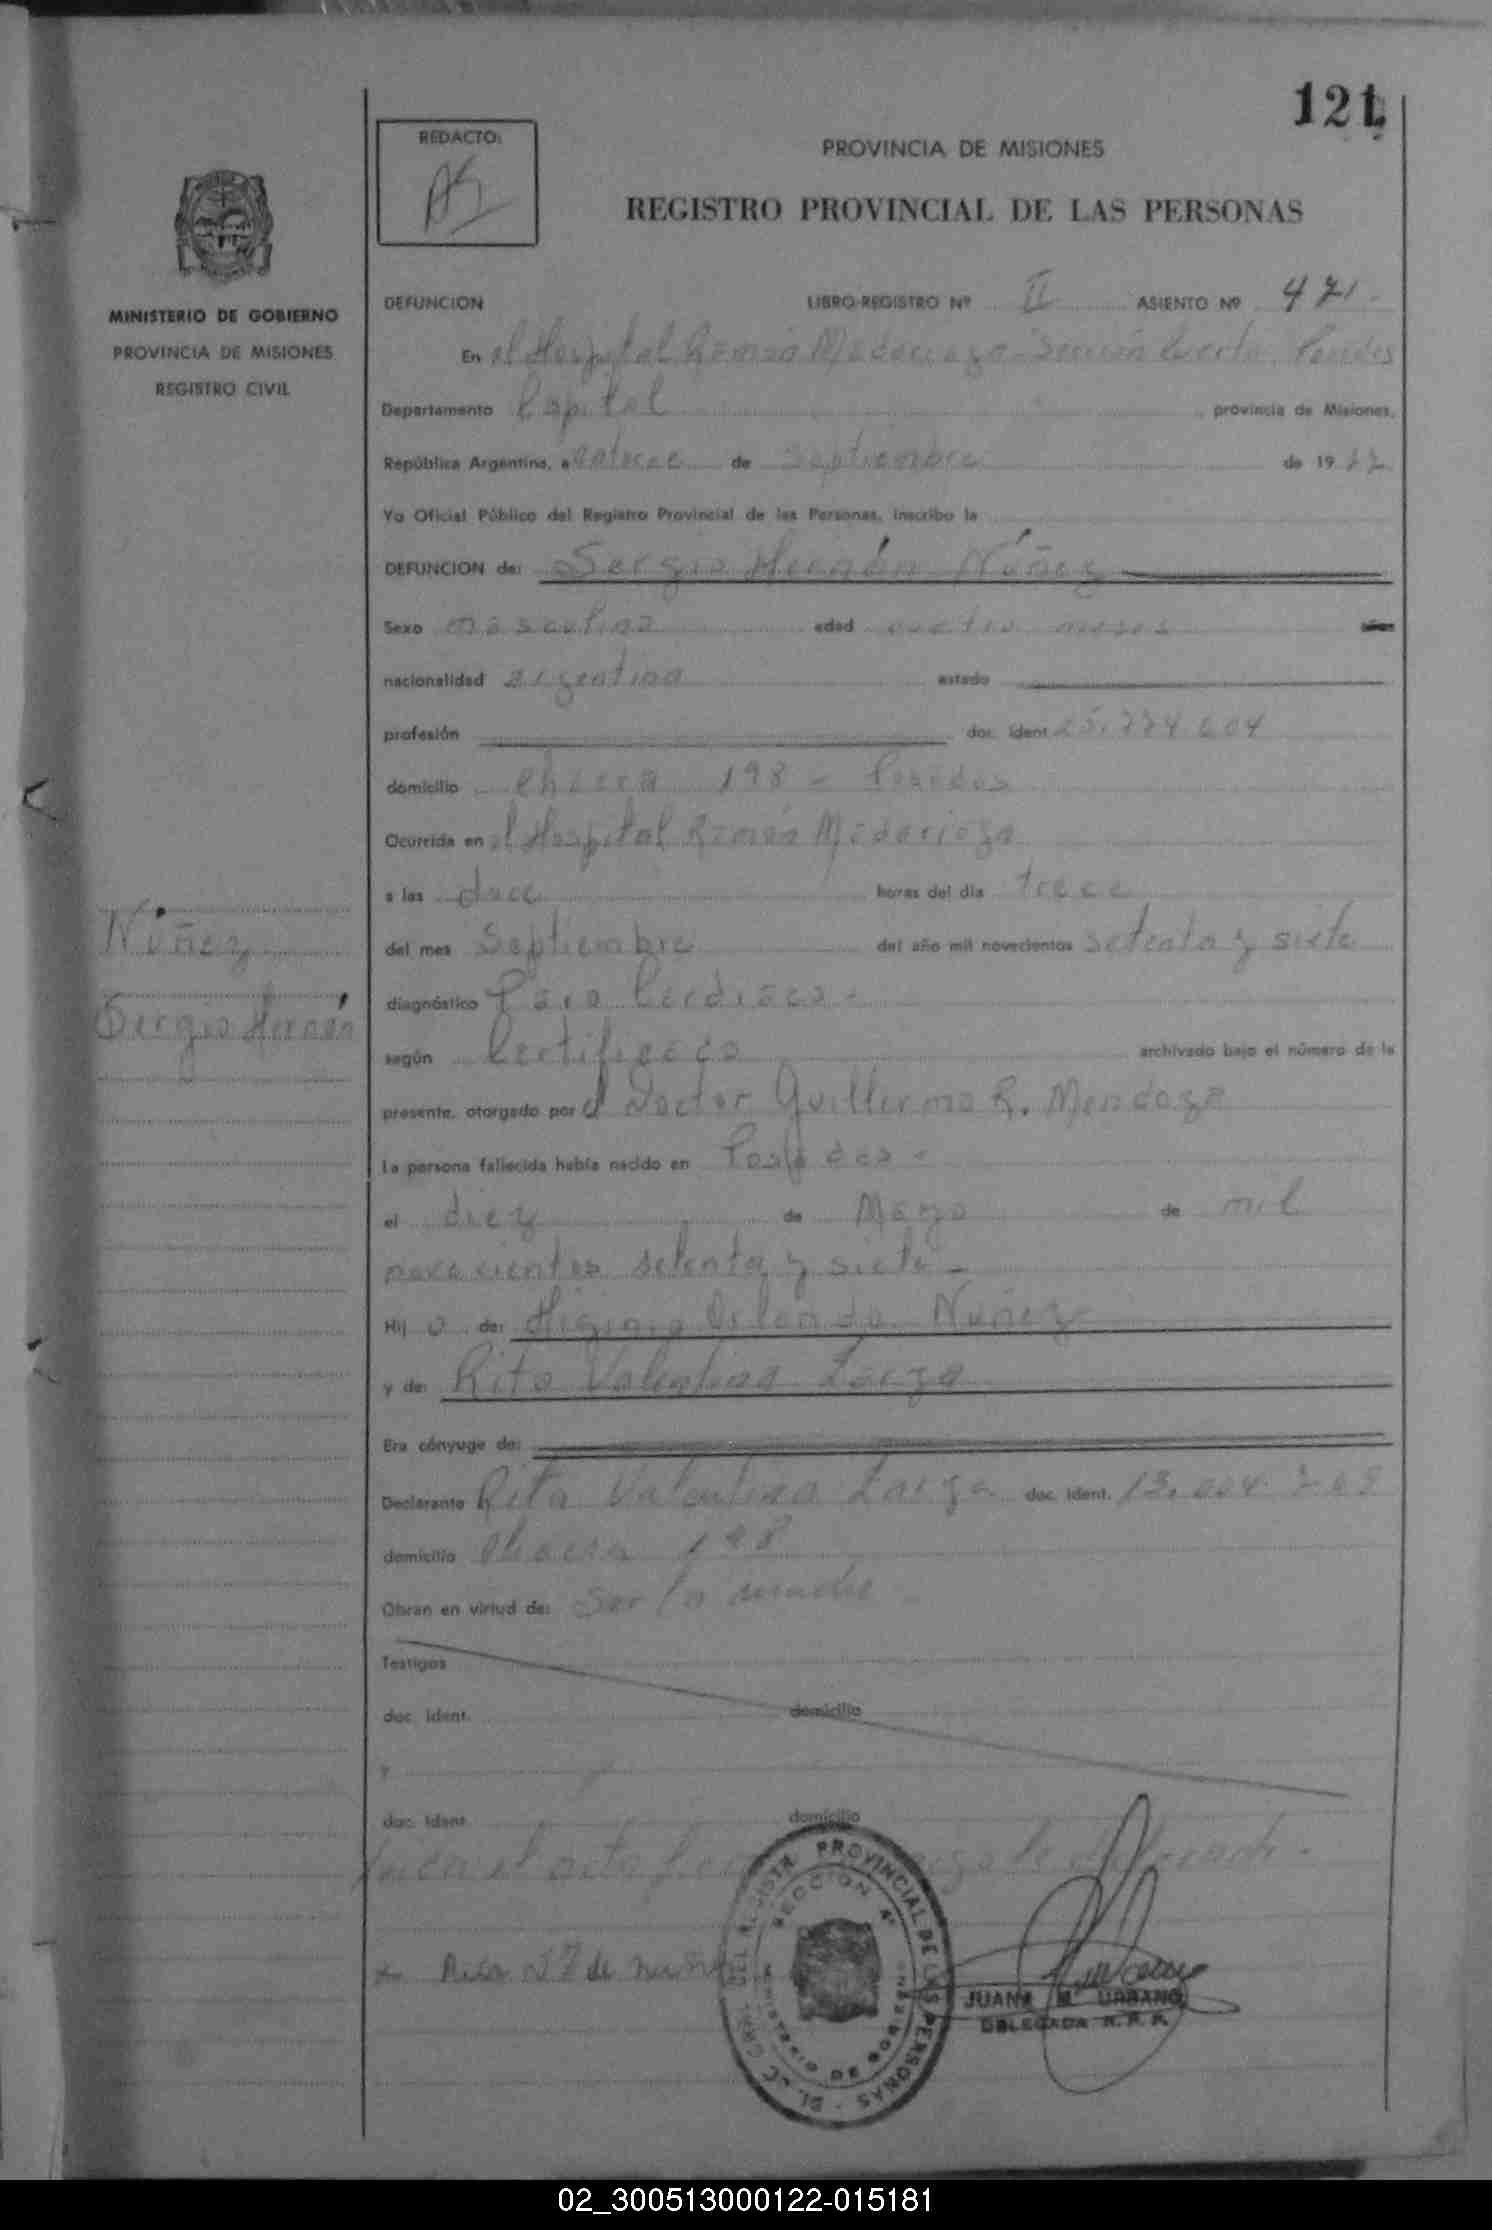 121
REDACTO:
PROVINCIA DE MISIONES
REGISTRO PROVINCIAL DE LAS PERSONAS
MINISTERIO DE GOBIERNO
PROVINCIA DE MISIONES
REGISTRO CIVIL
DEFUNCION LIBRO-REGISTRO Nº II ASIENTO Nº 471
En el Hospital Ramón Madariaga Sección Cuarta Posadas
Departamento Capital provincia de Misiones,
República Argentina, a catorce de Septiembre de 1977
Yo Oficial Público del Registro Provincial de las Personas, inscribo la
DEFUNCION de: Sergio Hernán Núñez
Sexo masculino edad cuatro meses
nacionalidad argentina estado
profesión doc. ident 25.774.604
domicilio Chacra 198 - Posadas
Ocurrida en el Hospital Ramón Madariaga
a las doce horas del día trece
del mes Septiembre del año mil novecientos setenta y siete
diagnóstico Paro Cardíaco -
según Certificado archivado bajo el número de la
presente, otorgado por el Doctor Guillermo R. Mendoza
La persona fallecida había nacido en Posadas -
el diez de Mayo de mil
novecientos setenta y siete -
Hij o de: Higinio Orlando Núñez
y de: Rita Valentina Zarza
Era cónyuge de:
Declarante Rita Valentina Zarza doc. ident. 13.004.769
domicilio Chacra 198
Obran en virtud de: Ser la madre
Testigos
doc. ident. domicilio
y
doc. ident. domicilio
el acta
de
Núñez
Sergio Hernán
PROVINCIAL DE LAS PERSONAS
SECCION 4ª
JUANA M. URBANO
DELEGADA R. P. P.
02_300513000122-015181